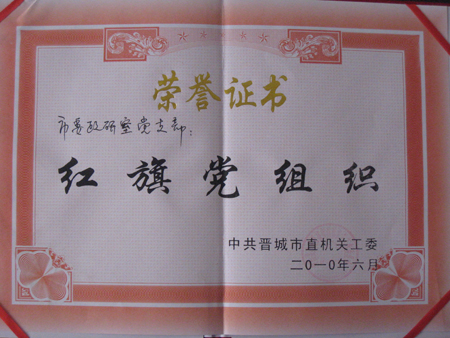 荣誉证书
市委政研室党支部：
红旗党组织
中共晋城市直机关工委
二〇一〇年六月